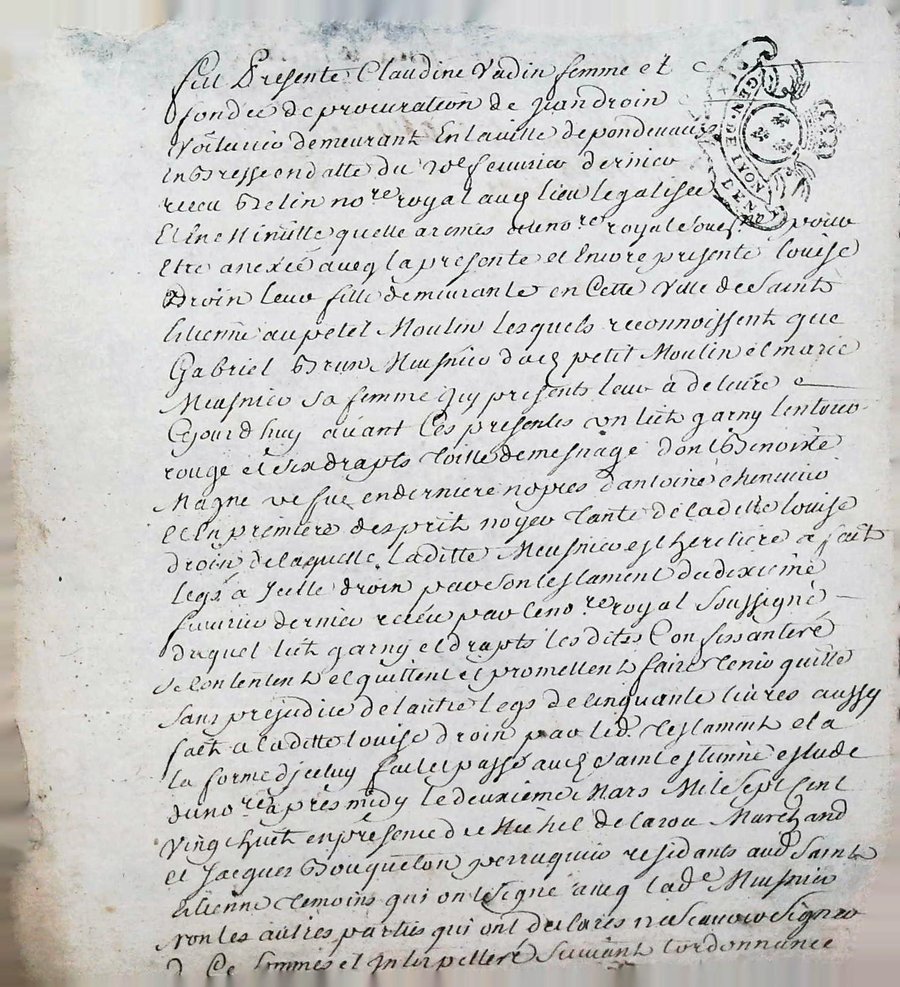 Fut Presente Claudine Vadin femme et
fondée de procuration de Jean droin
Voiturier demeurant En la ville de pondevaux
En Bresse en datte du fevrier dernier
receu Belin no.re royal aud lieu legalisée
Et En Minutte quelle a remis no.re royal pour
Etre anexée avecq la presente et Encore presente louise
Droin leur fille demeurante en Cette Ville de Saint
Etienne au petit Moulin lesquels reconnoissent que
Gabriel Brun Meusnier dud petit Moulin et marie
Meusnier sa femme Icy presents leur à délivré
Cejourd'huy avant Ces presentes un lict garny
rouge et six drapts toille de mesnage dont Benoiste
Magne vefve en derniere nopces d'antoine
et En premiere desprit noyer tante de laditte louise
droin de laquelle laditte Meusnier est heritiere a fait
legs a Icelle droin par son testament du dixieme
fevrier dernier receu par le no.re royal Soussigné
duquel lict garny et drapts les dites
se Contentent et quittent et promettent faire tenir quitte
sans prejudice de l'autre legs de Cinquante livres aussy
fait a laditte louise droin par led. testament et a
la forme d'jceluy fait et passé aud Saint estienne estude
du no.re apres midy le deuxieme Mars Mil Sept Cent
Vingt huit en presence de Michel de laroa Marchand
et Jacques Bouqueton perruquier residants aud Saint
Etienne temoins qui ont signé avecq lad.e Meusnier
non les autres parties qui ont declarés ne scavoir signer
de Ce Sommés et Interpellés Suivant l'ordonnance
GEN. DE LYON